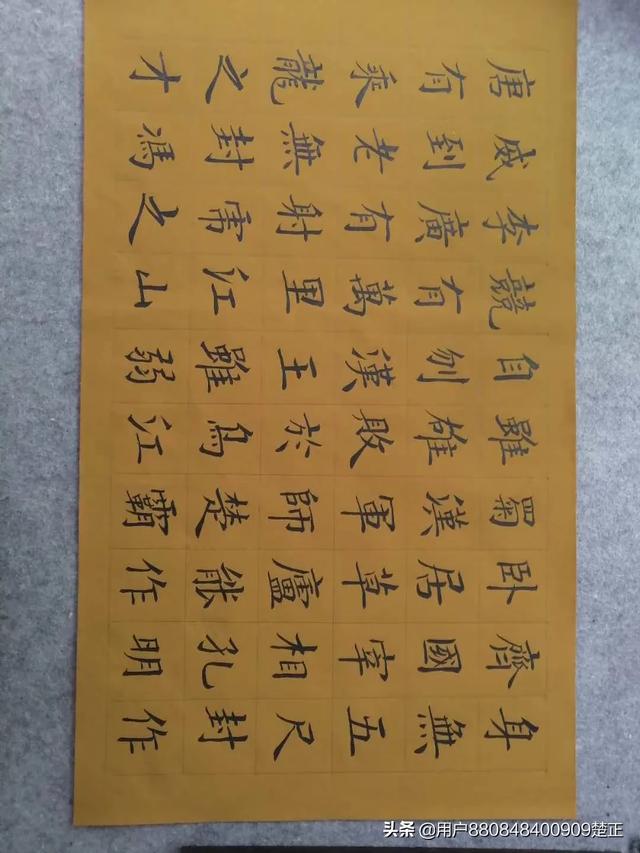 身無五尺封作
齊國宰相孔明
卧居草廬能作
蜀漢軍師楚霸
雖雄敗於烏江
自刎漢王雖弱
競有萬里江山
李廣有射虎之
威到老無封馮
唐有乘龍之才
头条 @用户880848400909楚正